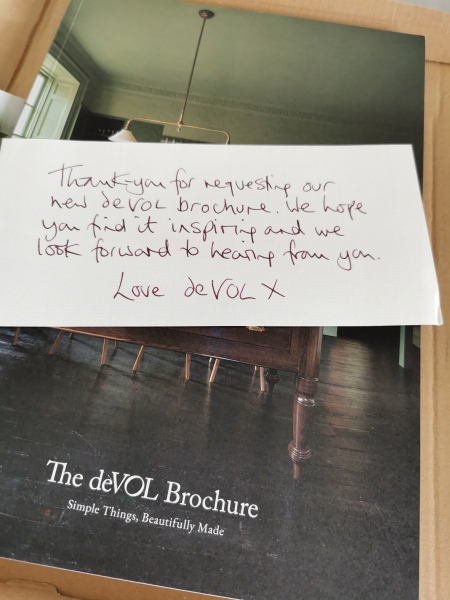 Thank-you for requesting our
new deVOL brochure. We hope
you find it inspiring and we
look forward to hearing from you.
Love deVOL X
The deVOL Brochure
Simple Things, Beautifully Made